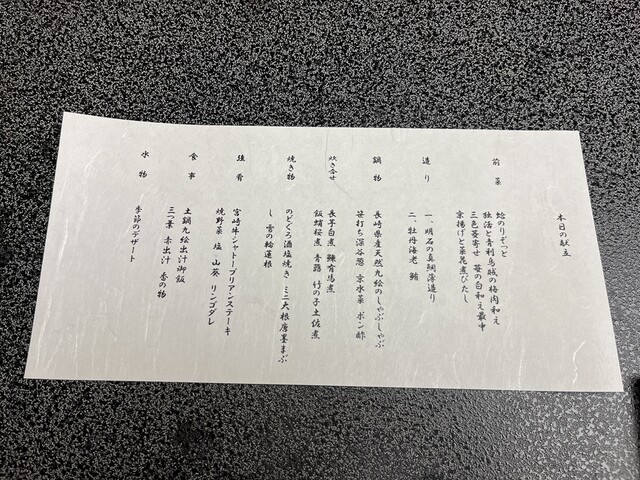 本日の献立
前菜
蛤のりぞっと
独活と青利烏賊の梅肉和え
三色姜寄せ 笹の白和え最中
京揚げと菜花煮びたし
造り
一、明石の真鯛薄造り
二、牡丹海老 鮪
鍋物
長崎県産天然九絵のしゃぶしゃぶ
笹打ち深谷葱 京水菜 ポン酢
炊き合せ
長芋白煮 鰊有馬煮
飯蛸桜煮 青路 竹の子土佐煮
焼き物
のどぐろ酒塩焼き ミニ大根唐墨まぶ
し 雪の輪蓮根
強肴
宮崎牛シャトーブリアンステーキ
焼野菜 塩 山葵 リンゴダレ
食事
土鍋九絵出汁御飯
三つ葉 赤出汁 香の物
水物
季節のデザート